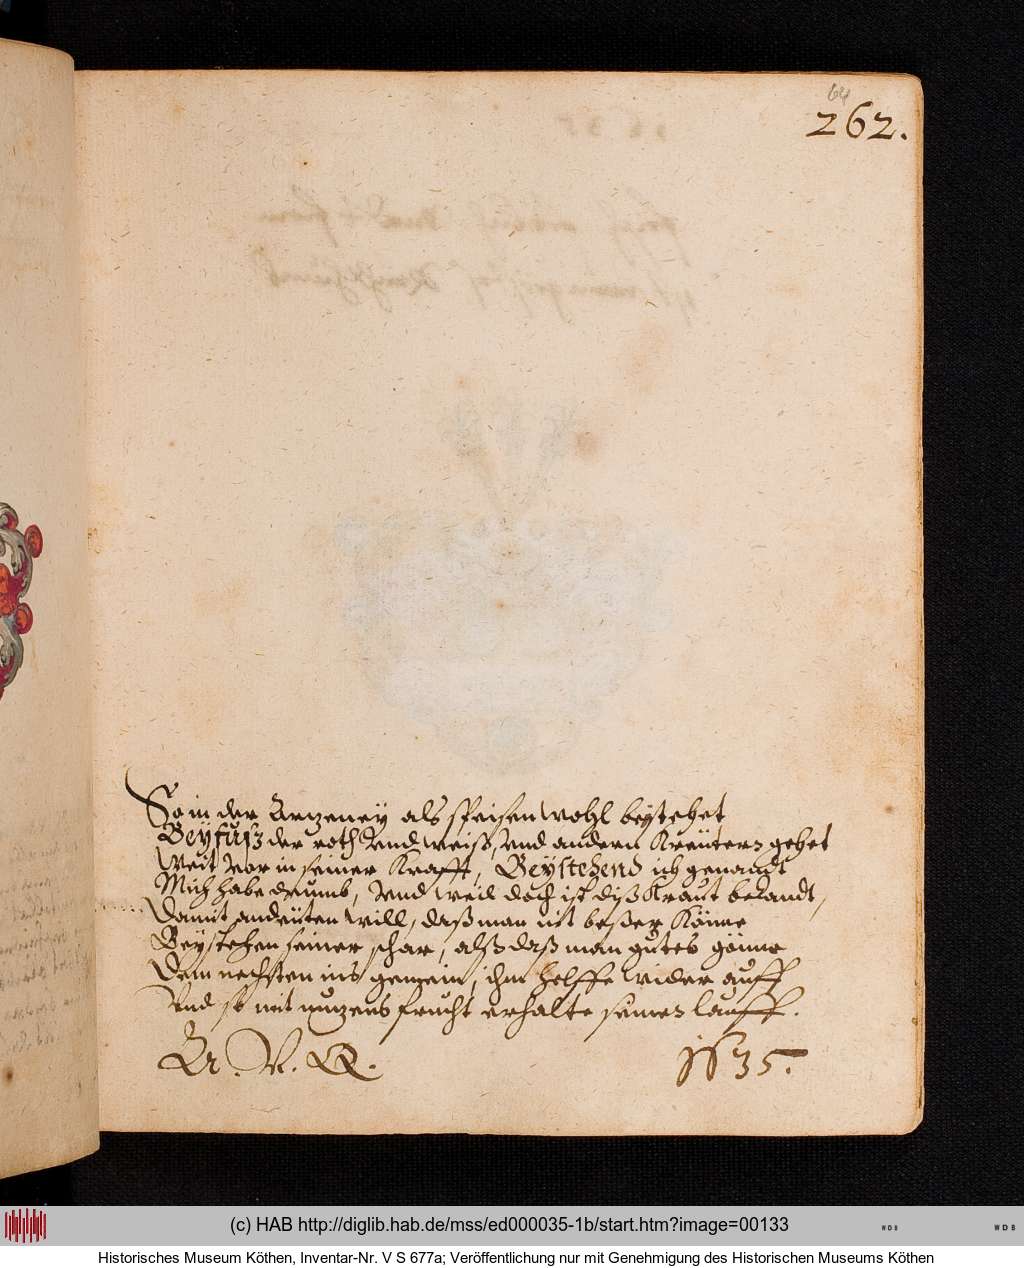 64
262.
So in der Artzeney als speisen wohl beystehet
Beyfuß der roth vnd weiß, vnd andern Kreütern gehet
Weit vor in seiner Krafft, Beystehend ich genandt
Mich habe drumb, vnd weil doch ist diß Kraut bekandt,
Damit andeüten will, daß man nit beßer könne
Beystehen seiner schar, alß daß man gutes gönne
Dem nechsten ins gemein, ihm helffe wider auff
Vnd so mit nutzens frucht erhalte seinen lauff.
A. V. Q.
1635.
(c) HAB http://diglib.hab.de/mss/ed000035-1b/start.htm?image=00133
WDB
WDB
Historisches Museum Köthen, Inventar-Nr. V S 677a; Veröffentlichung nur mit Genehmigung des Historischen Museums Köthen